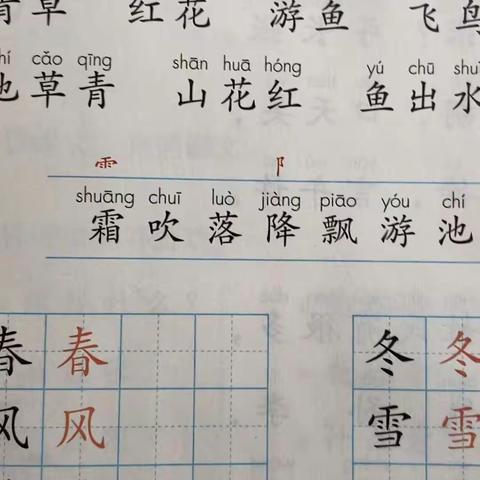 青草 红花 游鱼 飞鸟
chí cǎo qīng shān huā hóng yú chū shuǐ
池草青 山花红 鱼出水
⻗ 阝
shuāng chuī luò jiàng piāo yóu chí
霜吹落降飘游池
春春 冬冬
风风 雪雪